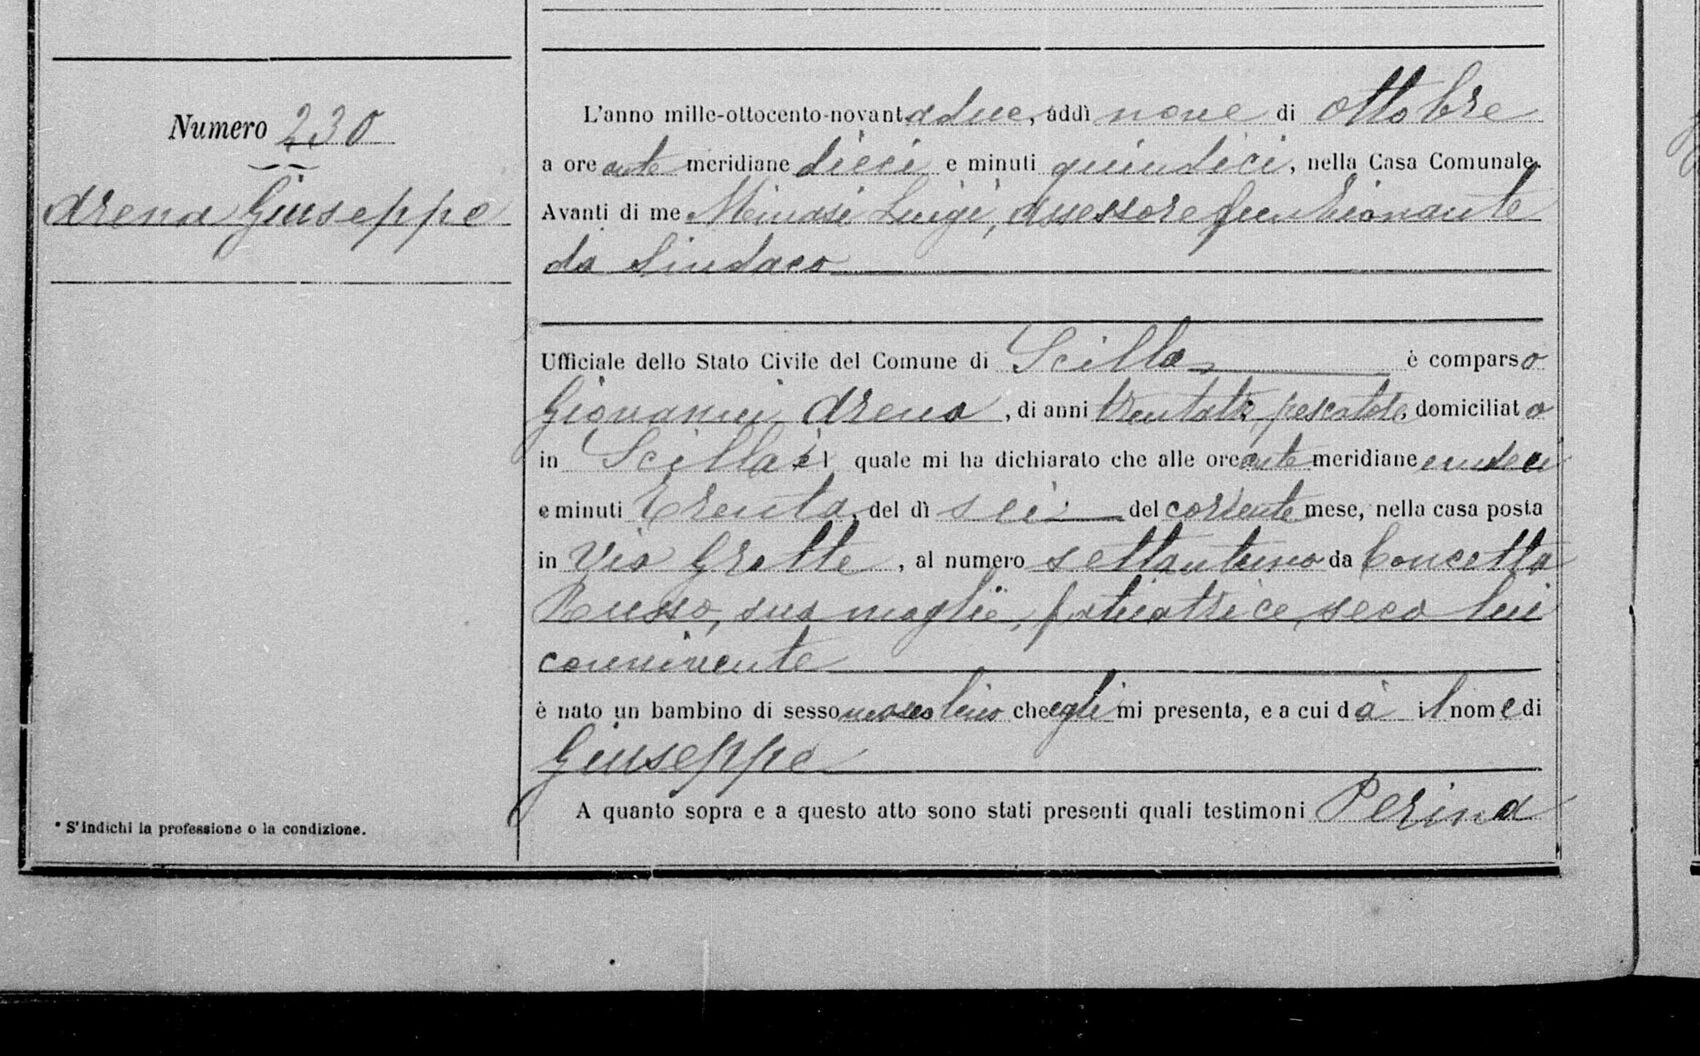 Numero 230
Arena Giuseppe
* S'indichi la professione o la condizione.
L'anno mille-ottocento-novantadue, addì nove di Ottobre
a ore ante meridiane dieci e minuti quindici, nella Casa Comunale.
Avanti di me Minasi Luigi, Assessore funzionante
da Sindaco
Ufficiale dello Stato Civile del Comune di Scilla è comparso
Giovanni Arena, di anni pescatore, domiciliato
in Scilla il quale mi ha dichiarato che alle ore ante meridiane undeci
e minuti trenta, del dì sei del corrente mese, nella casa posta
in Via Grotte, al numero settantuno da Concetta
Russo, sua moglie, seco lui
convivente
è nato un bambino di sesso mascolino che egli mi presenta, e a cui dà il nome di
Giuseppe
A quanto sopra e a questo atto sono stati presenti quali testimoni Perina